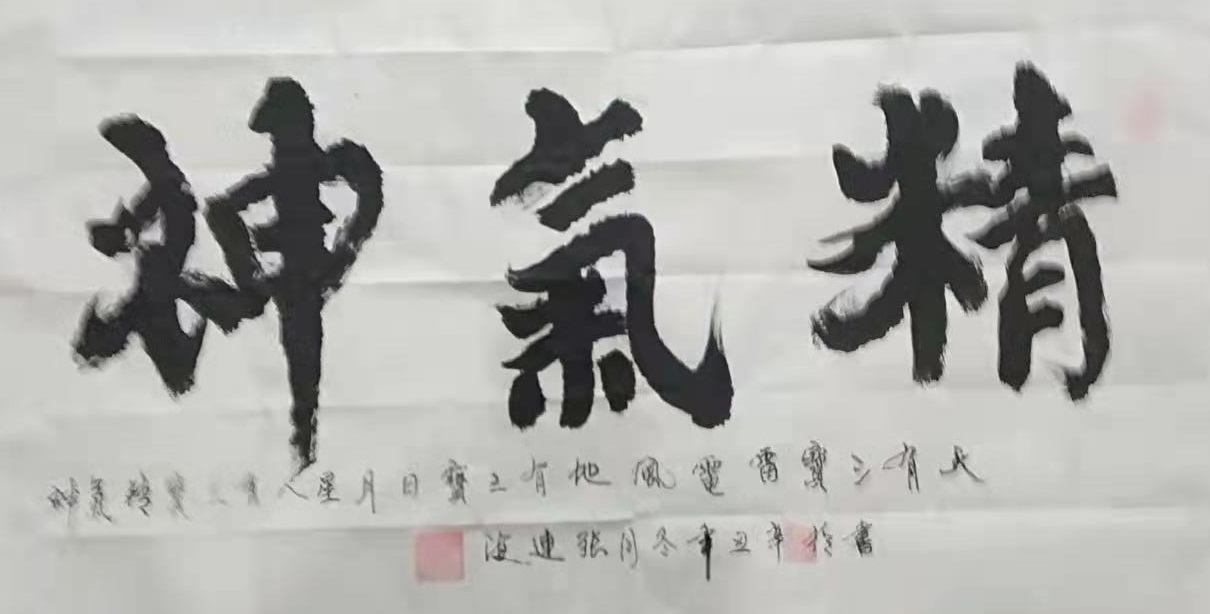 精氣神
天有三寶雷電風地有三寶日月星人有三寶精氣神
書於辛丑年冬月張連波